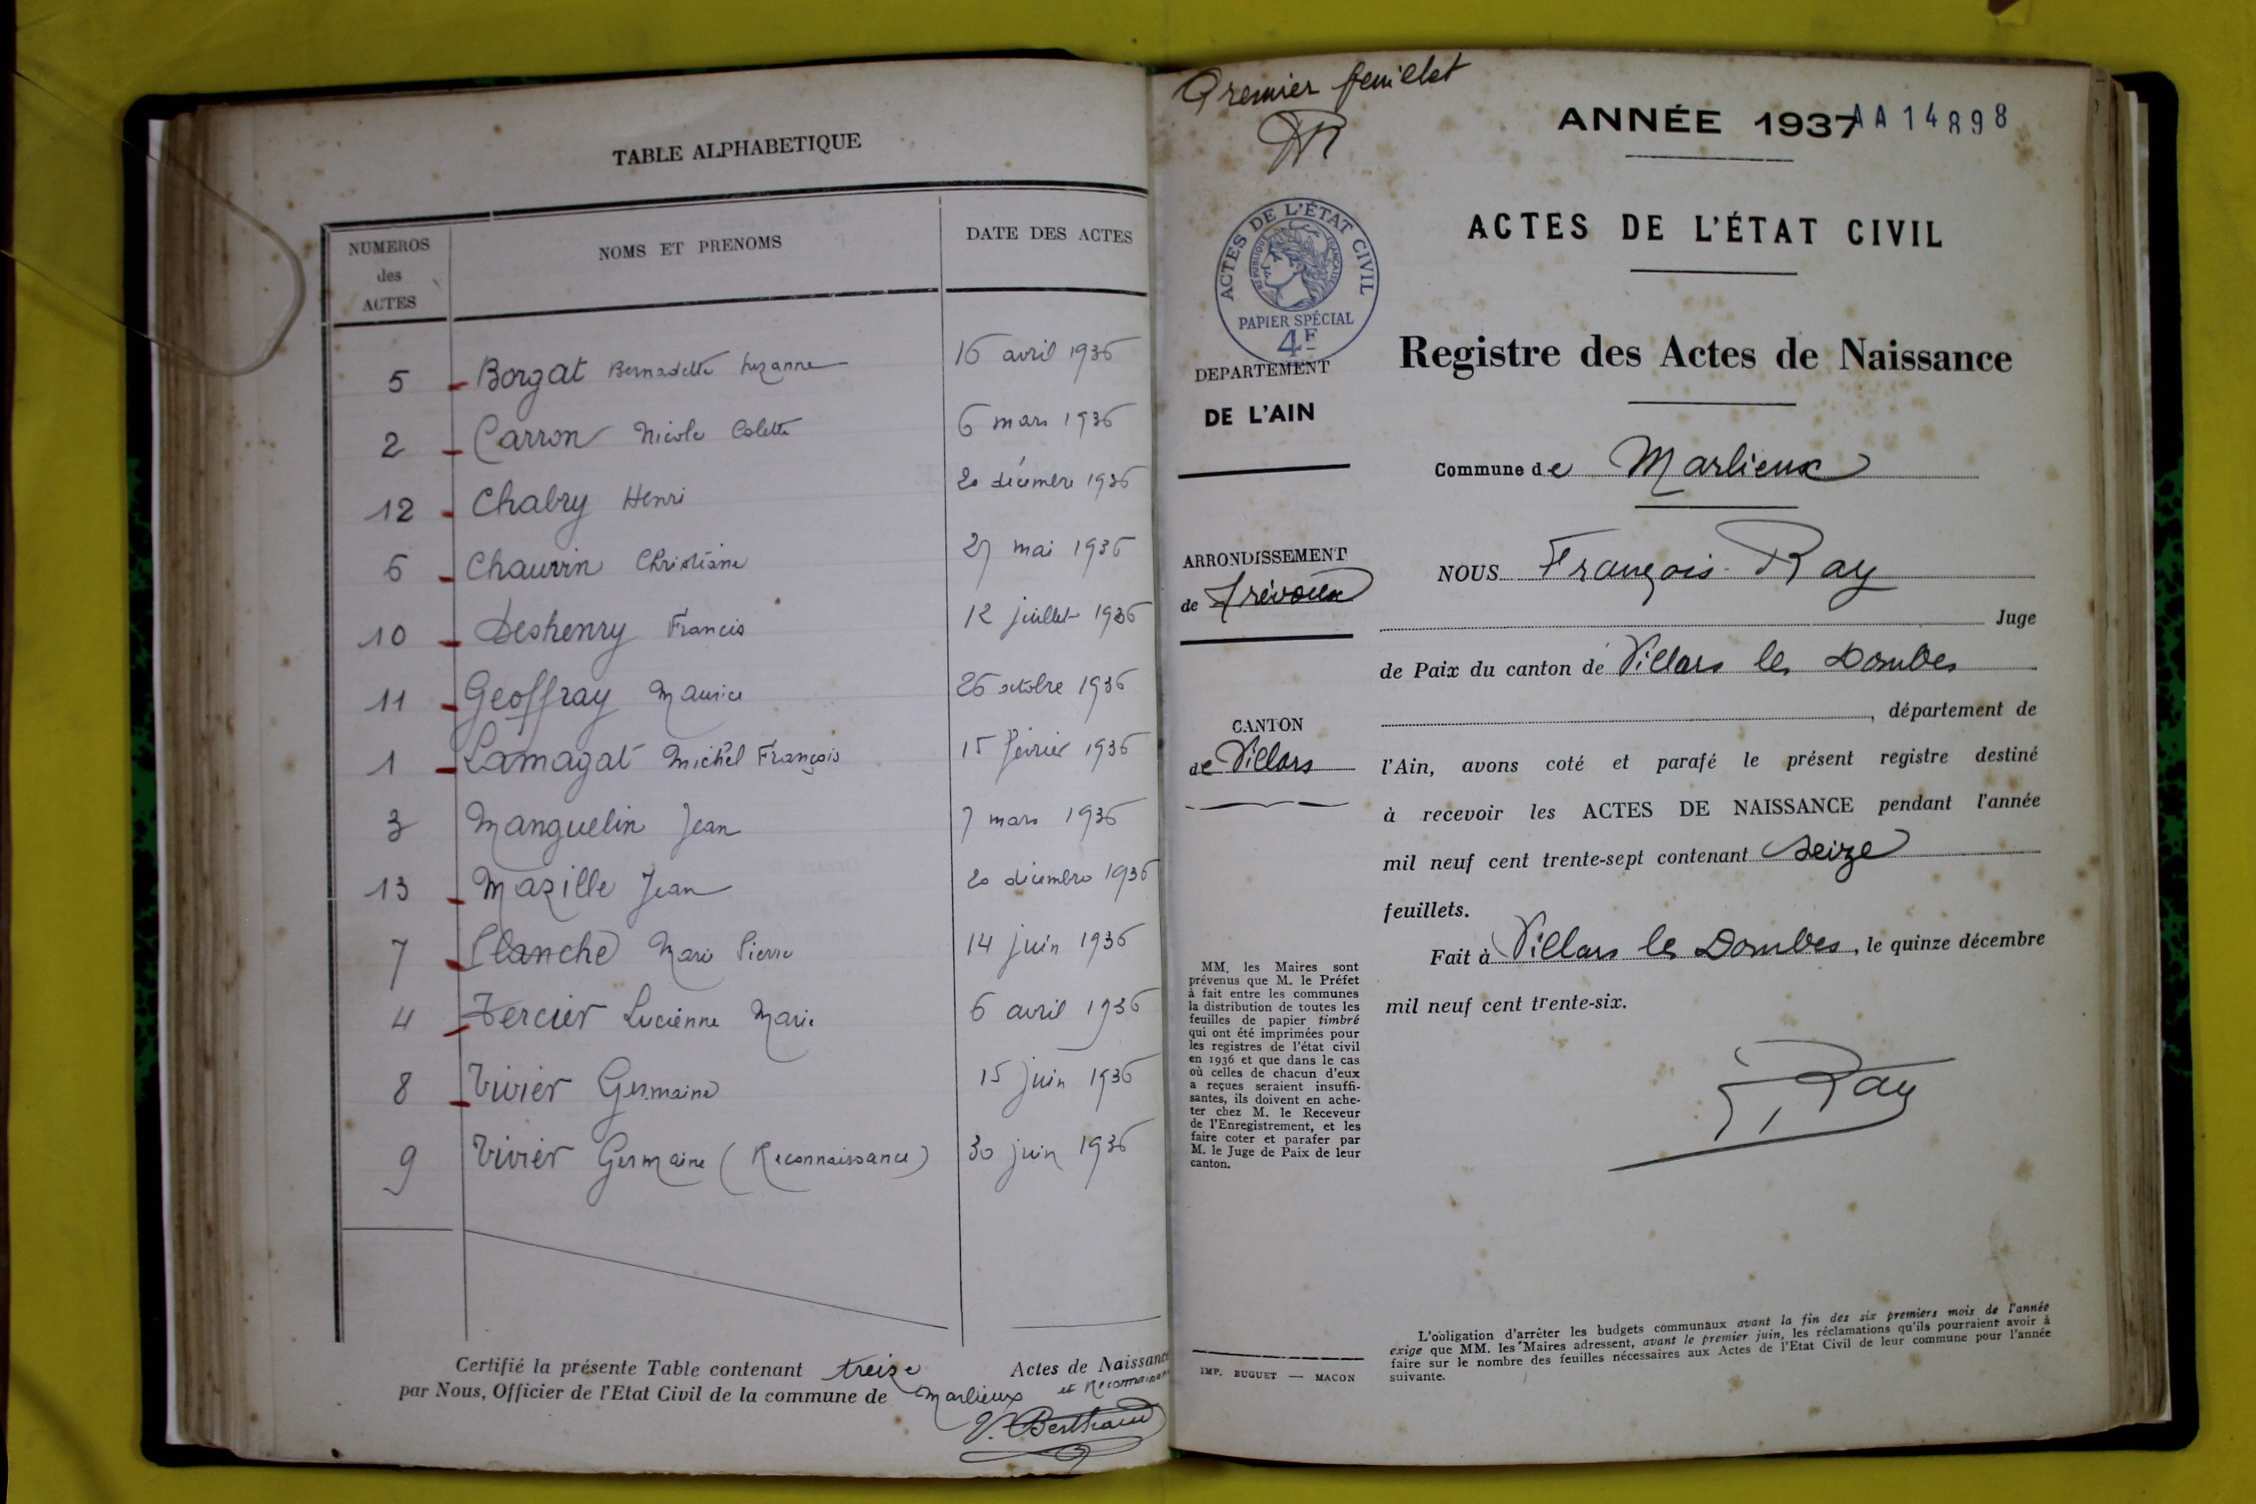 TABLE ALPHABETIQUE
NUMEROS des ACTES NOMS ET PRENOMS DATE DES ACTES
5 Borgat Bernadette Suzanne 16 avril 1936
2 Carron Nicole Colette 6 mars 1936
12 Chabry Henri 20 décembre 1936
6 Chauvin Christiane 27 mai 1936
10 Deshenry Francis 12 juillet 1936
11 Geoffray Maurice 26 octobre 1936
1 Lamagat Michel François 15 février 1936
3 Manguelin Jean 7 mars 1936
13 Mazille Jean 20 décembre 1936
7 Planche Marie Pierre 14 juin 1936
4 Tercier Lucienne Marie 6 avril 1936
8 Vivier Germaine 15 juin 1936
9 Vivier Germaine (Reconnaissance) 30 juin 1936
Certifié la présente Table contenant treize Actes de Naissance
et Reconnaissance
par Nous, Officier de l'Etat Civil de la commune de Marlieux
V. Berthaud
Premier feuillet
ANNÉE 1937
AA 14898
ACTES DE L'ÉTAT CIVIL
RÉPUBLIQUE FRANÇAISE
PAPIER SPÉCIAL
4F
DEPARTEMENT
DE L'AIN
ARRONDISSEMENT
de Trévoux
CANTON
de Villars
MM. les Maires sont
prévenus que M. le Préfet
à fait entre les communes
la distribution de toutes les
feuilles de papier timbré
qui ont été imprimées pour
les registres de l'état civil
en 1936 et que dans le cas
où celles de chacun d'eux
a reçues seraient insuffi-
santes, ils doivent en ache-
ter chez M. le Receveur
de l'Enregistrement, et les
faire coter et parafer par
M. le Juge de Paix de leur
canton.
IMP. BUGUET — MACON
ACTES DE L'ÉTAT CIVIL
Registre des Actes de Naissance
Commune de Marlieux
NOUS François Ray
Juge
de Paix du canton de Villars les Dombes
, département de
l'Ain, avons coté et parafé le présent registre destiné
à recevoir les ACTES DE NAISSANCE pendant l'année
mil neuf cent trente-sept contenant seize
feuillets.
Fait à Villars les Dombes, le quinze décembre
mil neuf cent trente-six.
F. Ray
L'obligation d'arrêter les budgets communaux avant la fin des six premiers mois de l'année
exige que MM. les Maires adressent, avant le premier juin, les réclamations qu'ils pourraient avoir à
faire sur le nombre des feuilles nécessaires aux Actes de l'Etat Civil de leur commune pour l'année
suivante.